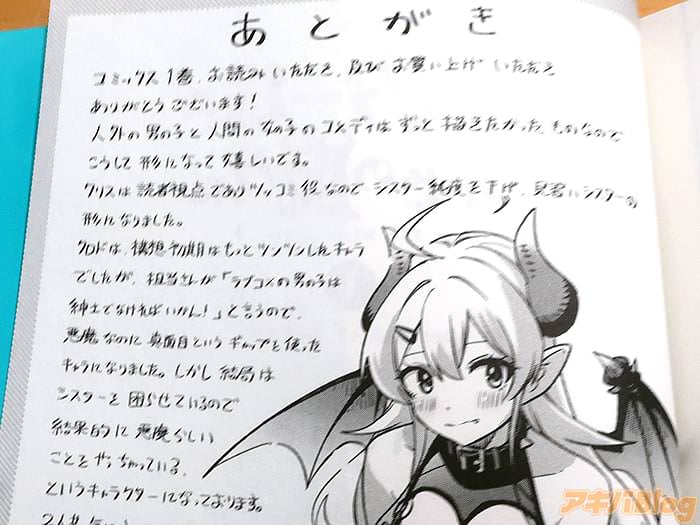 あとがき
コミックス1巻、お読みいただき、及びお買い上げいただき
ありがとうございます!
人外の男の子と人間の女の子のコメディはずっと描きたかったものなので
こうして形になって嬉しいです。
クリスは読者視点でありツッコミ役なのでシスター純度を下げ、見習いシスターの
形になりました。
クロドは、構想初期はもっとツンツンしたキャラ
でしたが、担当さんが「ラブコメの男の子は
紳士でなければいかん!」と言うので、
悪魔なのに真面目というギャップを使った
キャラになりました。しかし結局は
シスターを困らせているので
結果的に悪魔らしい
ことをやっちゃっている、
というキャラクターになっております。
アキバBlog